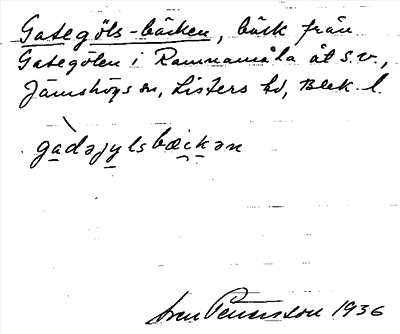 Gasegöls-bäcken, bäck från
Gasegölen i Ramnamåla åt s.v.,
Jämshögs sn, Listers hd, Blek. l.
gàdəjylsbæikən
Sven Benson 1936